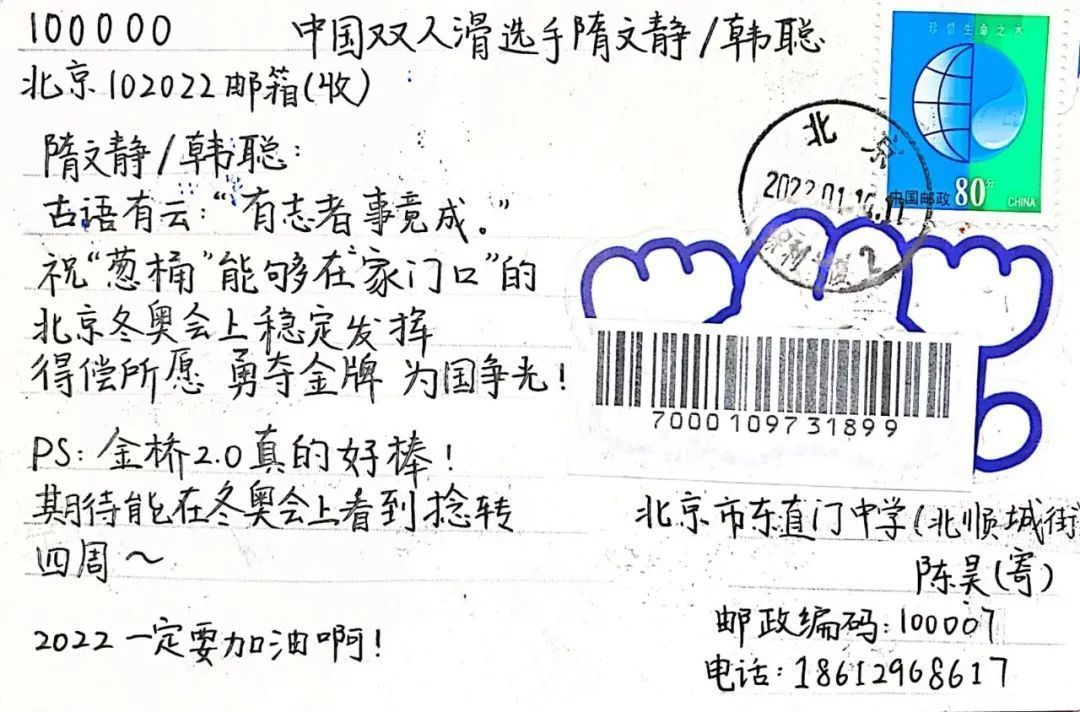 100000
中国双人滑选手隋文静/韩聪
北京102022邮箱(收)
隋文静/韩聪:
古语有云:“有志者事竟成。”
祝“葱桶”能够在“家门口”的
北京冬奥会上稳定发挥
得偿所愿 勇夺金牌 为国争光!
PS:金桥2.0真的好棒!
期待能在冬奥会上看到捻转
四周~
2022一定要加油啊!
珍惜生命之水
中国邮政 80分
CHINA
北京
2022.01.1
2
7000109731899
北京市东直门中学(北顺城街
陈昊(寄)
邮政编码:100007
电话:18612968617